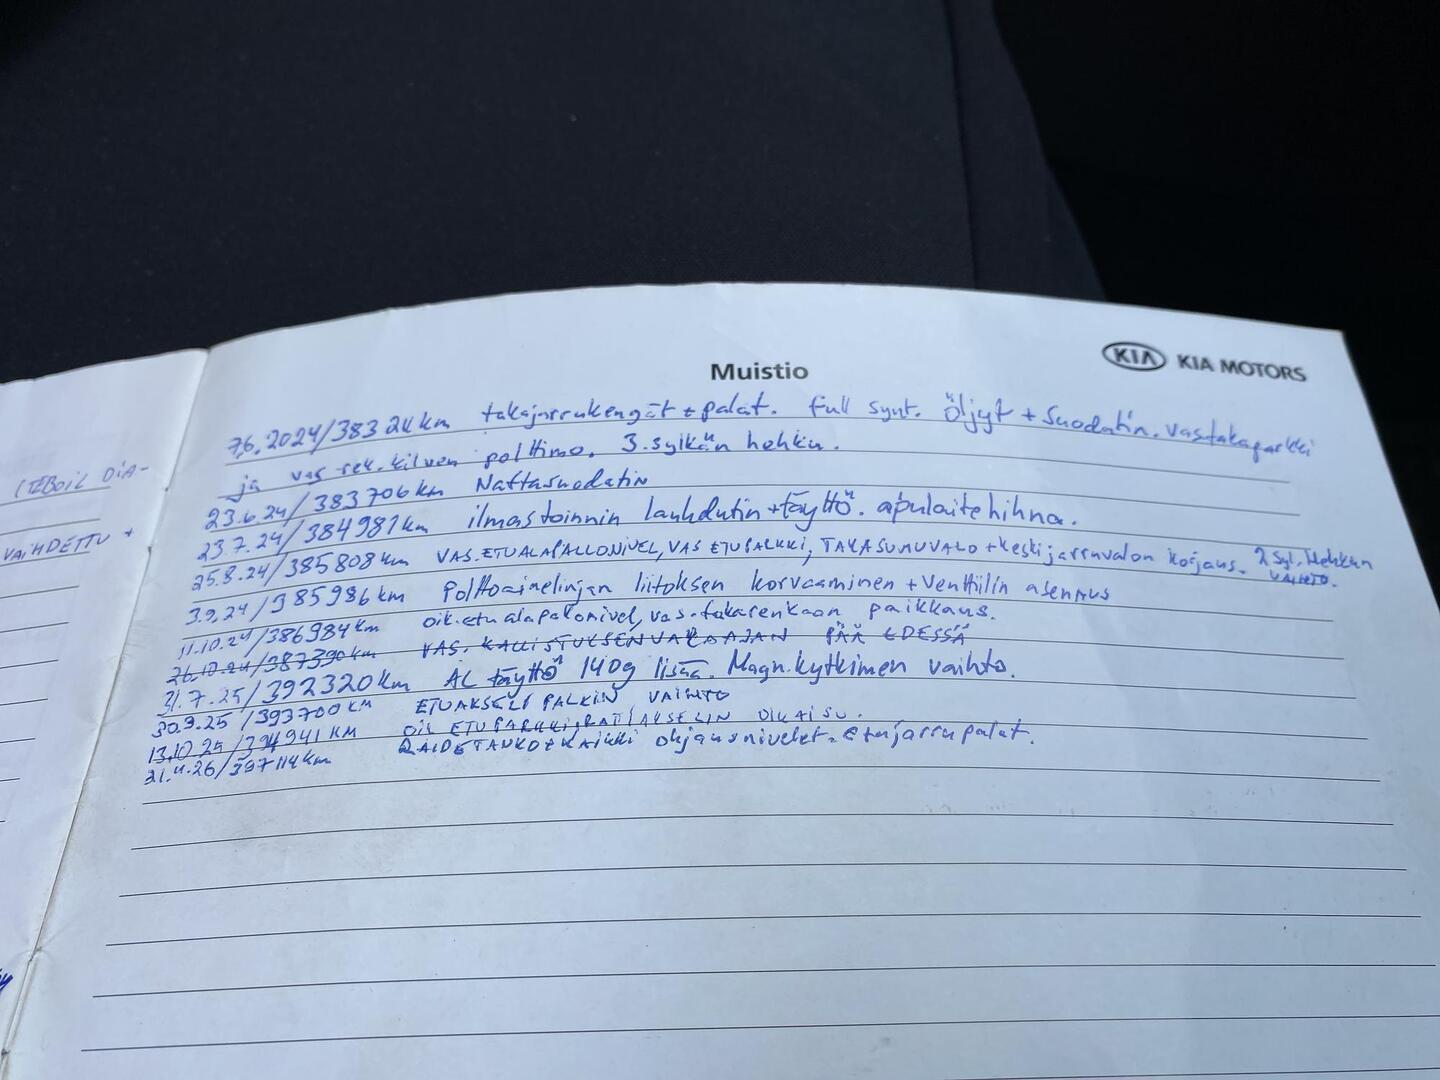 Muistio
KIA KIA MOTORS
7.6.2024/38324km takajarrukengät + palat. full synt. Öljyt + Suodatin. vastakaparkki
ja vas rek.kilven polttimo. 3.sylkän hehku.
23.6.24/383706km Naftasuodatin
23.7.24/384981km ilmastoinnin lauhdutin + täyttö. apulaitehihna.
25.8.24/385808km VAS.ETUALAPALLONIVEL, VAS ETUPALKKI, TAKASUMUVALO + keskijarruvalon korjaus. 2 Syl. Hehkun
VAIHTO.
3.9.24/385986km Polttoainelinjan liitoksen korvaaminen + Venttiilin asennus
11.10.24/386984km oik.etualapallonivel, vas.takarenkaan paikkaus.
26.10.24/387390km VAS. KALLISTUKSENVAKAAJAN PÄÄ EDESSÄ
31.7.25/392320km AC täyttö 140g lisää. Magn.kytkimen vaihto.
30.9.25/393700KM ETUAKSELI PALKIN VAIHTO
13.10.25/394941KM OIK ETUPARKKI, OIKAISU.
21.4.26/397114km RAIDETANKO + KAIKKI ohjausnivelet. etujarrupalat.
(TEBOIL DIA-
VAIHDETTU +